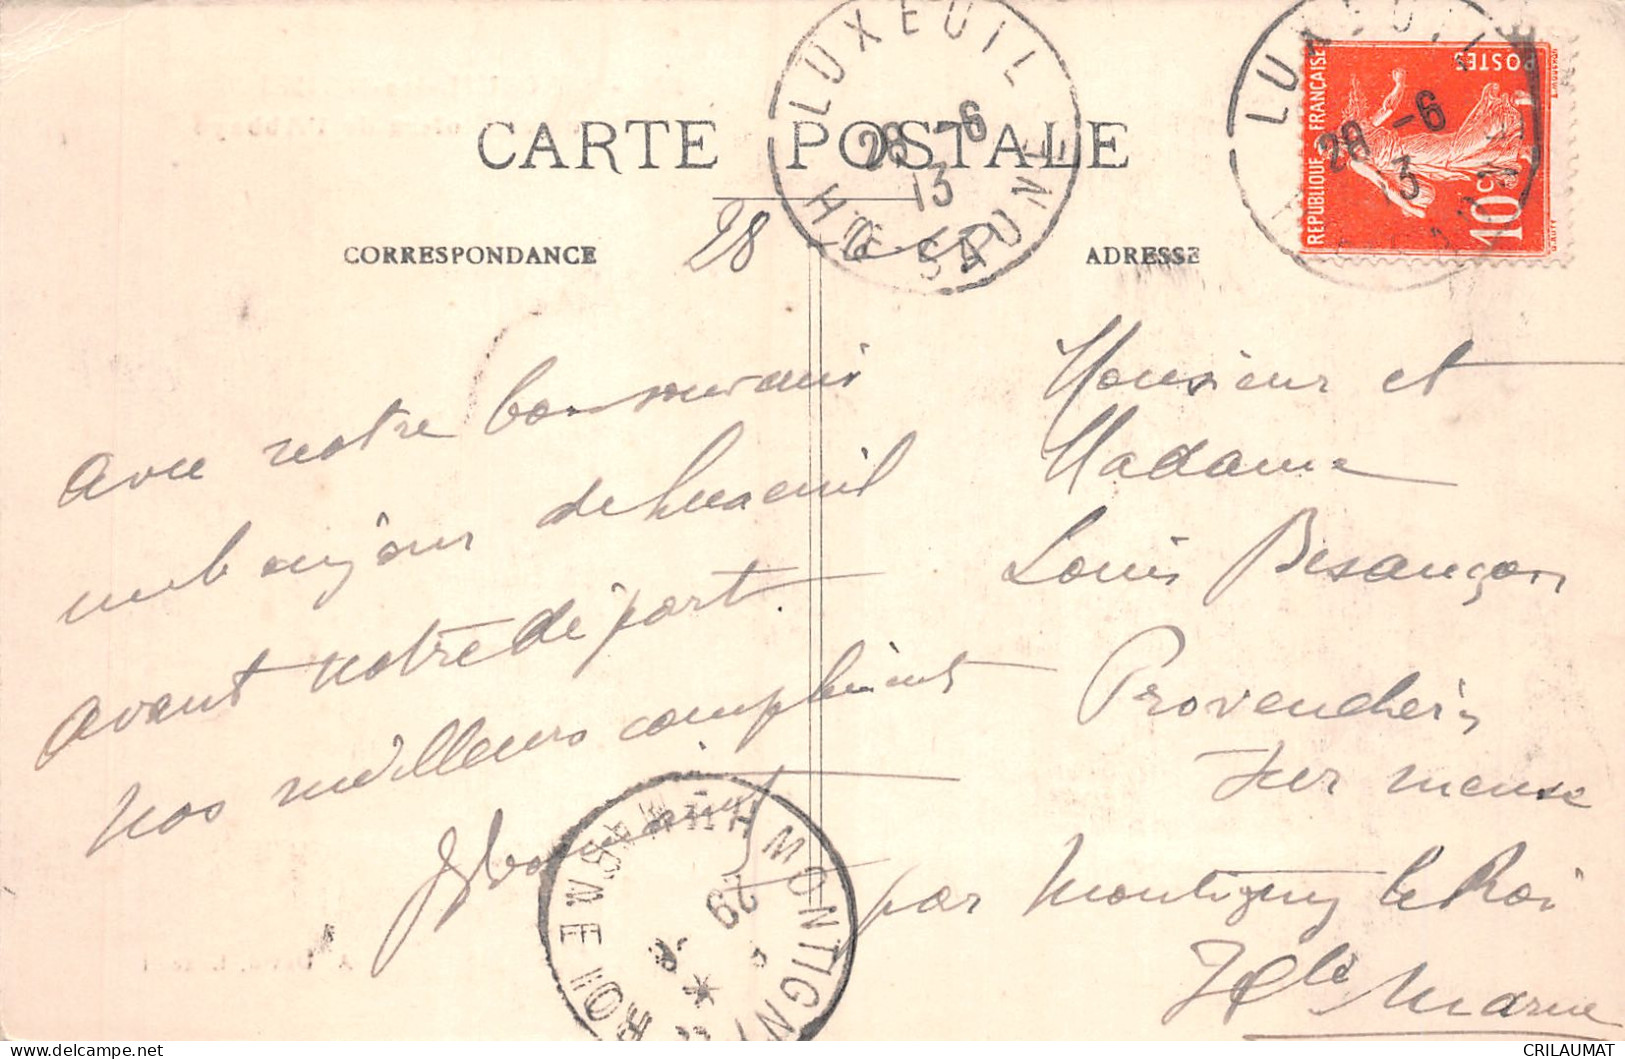 CARTE POSTALE
CORRESPONDANCE
ADRESSE
28 - 6 - 13
LUXEUIL
28 -6
13
Hte SAONE
LUXEUIL
28 -6
13
REPUBLIQUE FRANÇAISE
POSTES
10c
Avec notre bon souvenir
un bonjour de Luxeuil
avant notre départ.
Nos meilleurs compliments
Monsieur et
Madame
Louis Besançon
Provenchère
sur meuse
par Montigny le Roi
Hte Marne
MONTIGNY
ROI
HTE MARNE
29
CRILAUMAT